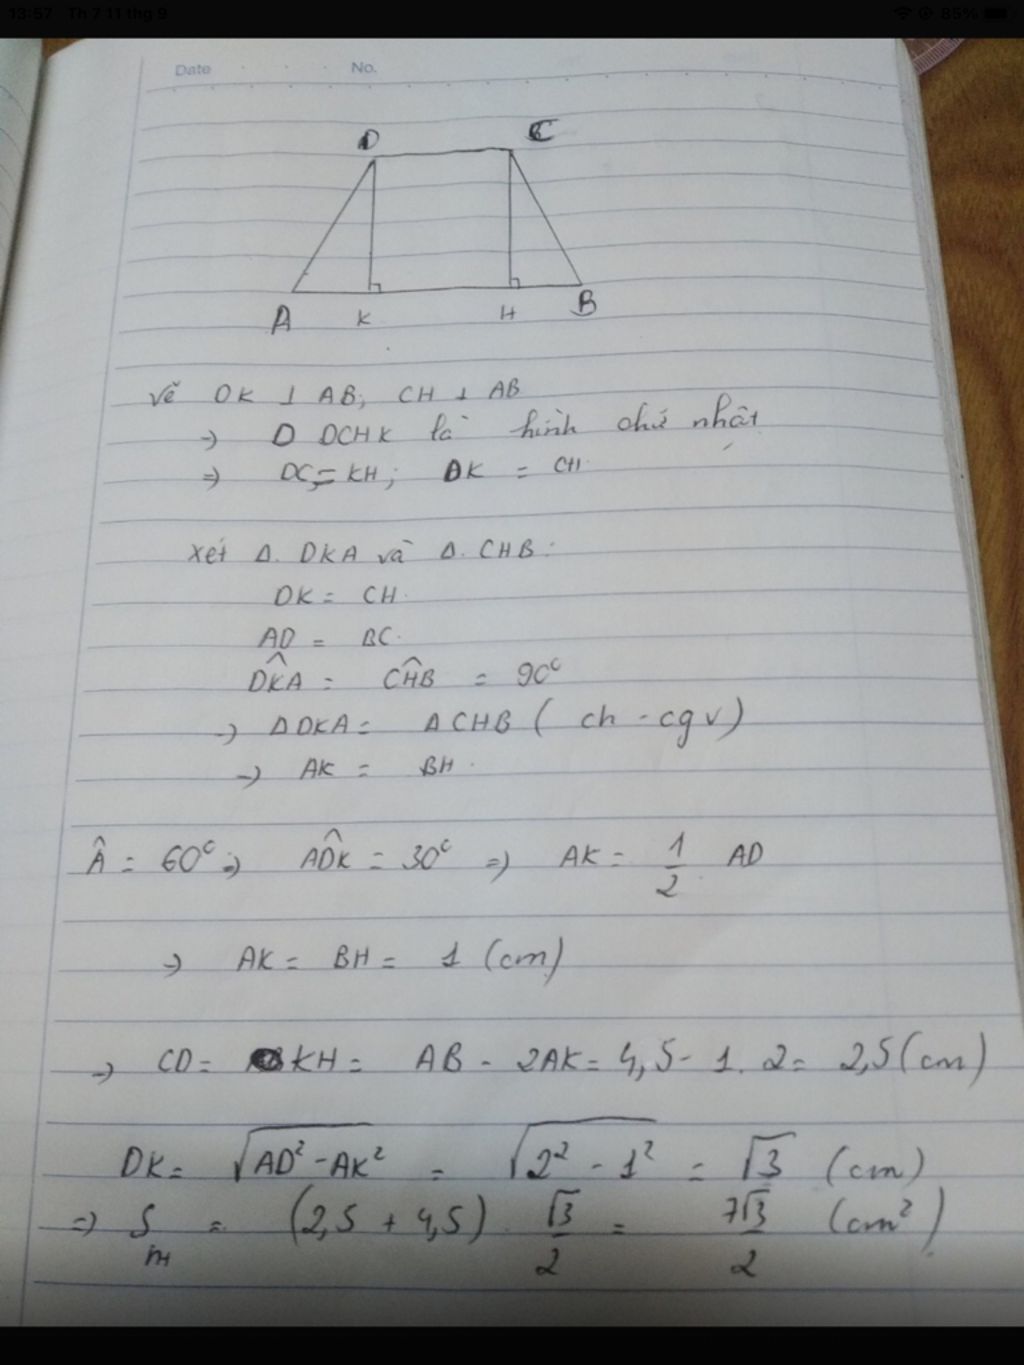 13:57 Th 7 11 thg 9 85%
Date No.
D C
A K H B
Vẽ DK ⊥ AB; CH ⊥ AB
→ D DCHK là hình chữ nhật
⇒ DC = KH; DK = CH
Xét Δ. DKA và Δ. CHB:
DK = CH.
AD = BC.
D̂KA = ĈHB = 90°
→ ΔDKA = ΔCHB ( ch - cgv)
→ AK = BH.
Â = 60° ⇒ ADK̂ = 30° ⇒ AK = 1/2 AD
⇒ AK = BH = 1 (cm)
→ CD = KH = AB - 2AK = 4,5 - 1. 2 = 2,5 (cm)
DK = √(AD² - AK²) = √(2² - 1²) = √3 (cm)
⇒ S = (2,5 + 4,5) . √3/2 = 7√3/2 (cm²)